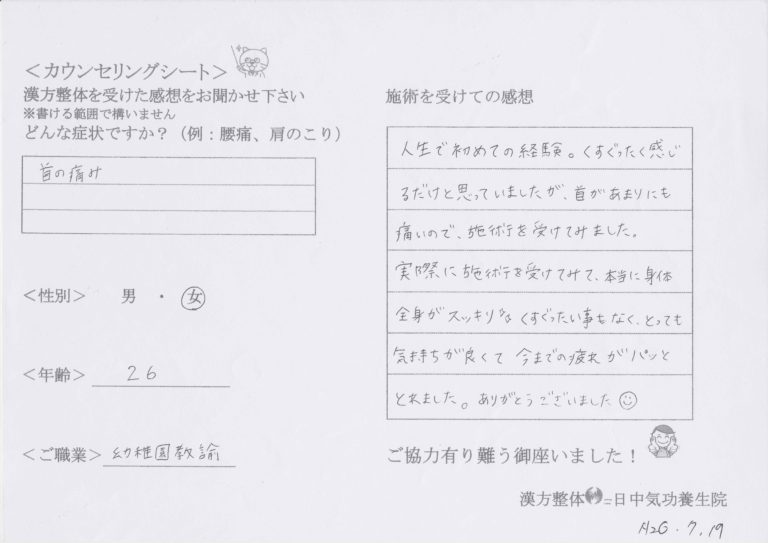 ＜カウンセリングシート＞
漢方整体を受けた感想をお聞かせ下さい
※書ける範囲で構いません
どんな症状ですか？（例：腰痛、肩のこり）
首の痛み
＜性別＞　男　・　女
＜年齢＞　26
＜ご職業＞幼稚園教諭
施術を受けての感想
人生で初めての経験。くすぐったく感じ
るだけと思っていましたが、首があまりにも
痛いので、施術を受けてみました。
実際に施術を受けてみて、本当に身体
全身がスッキリなくすぐったい事もなく、とっても
気持ちが良くて 今までの疲れがパッと
とれました。ありがとうございました
ご協力有り難う御座いました！
漢方整体 = 日中気功養生院
H26・7.19